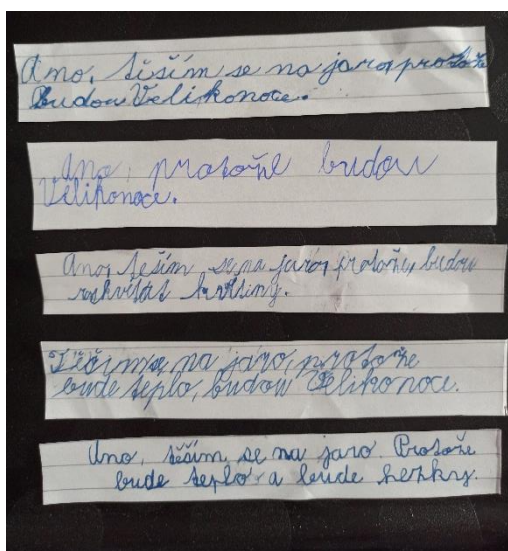 Ano, těším se na jaro, protože
budou Velikonoce.
Ano, protože budou
Velikonoce.
Ano, těším se na jaro, protože, budou
rozkvétat květiny.
Těčím se na jaro, protože
bude teplo, budou Velikonoce.
Ano, těším se na jaro. Protože
bude teplo a bude hezky.